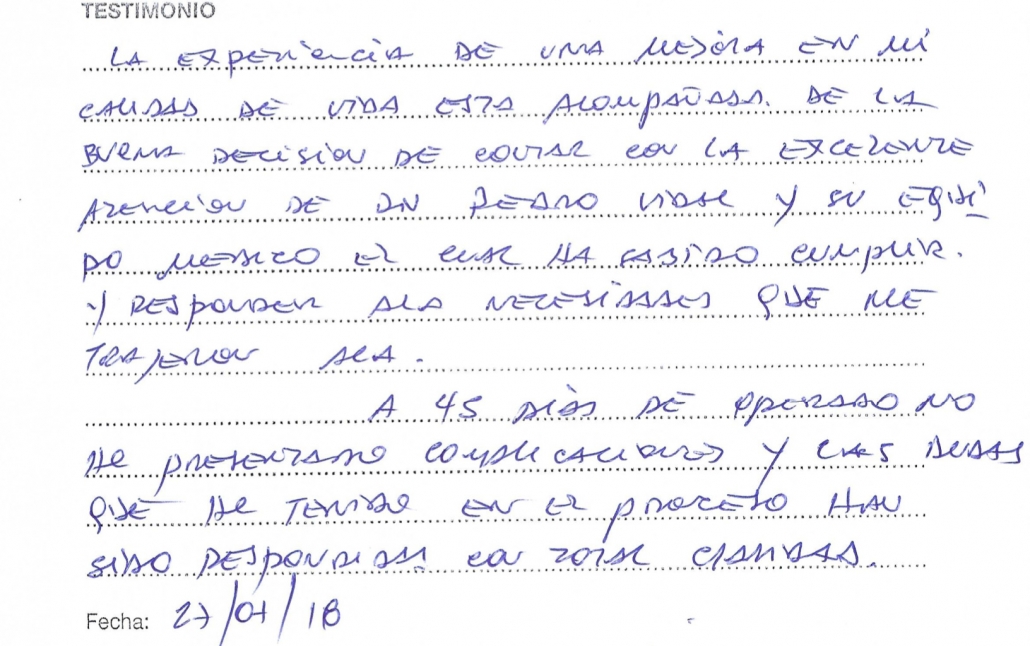 TESTIMONIO
LA EXPERIENCIA DE UNA MEJORA EN MI
CALIDAD DE VIDA ESTA ACOMPAÑADA. DE LA
BUENA DECISION DE CONTAR CON LA EXCELENTE
ATENCION DE DN PEDRO VIDAL Y SU EQUI
PO MEDICO EL CUAL HA SABIDO CUMPLIR.
Y RESPONDER A LA NECESIDADES QUE ME
TRAJERON ACA.
A 45 DÍAS DE OPERADO NO
HE PRESENTADO COMPLICACIONES Y LAS DUDAS
QUE HE TENIDO EN EL PROCESO HAN
SIDO RESPONDIDAS CON TOTAL CLARIDAD.
Fecha: 27/07/18